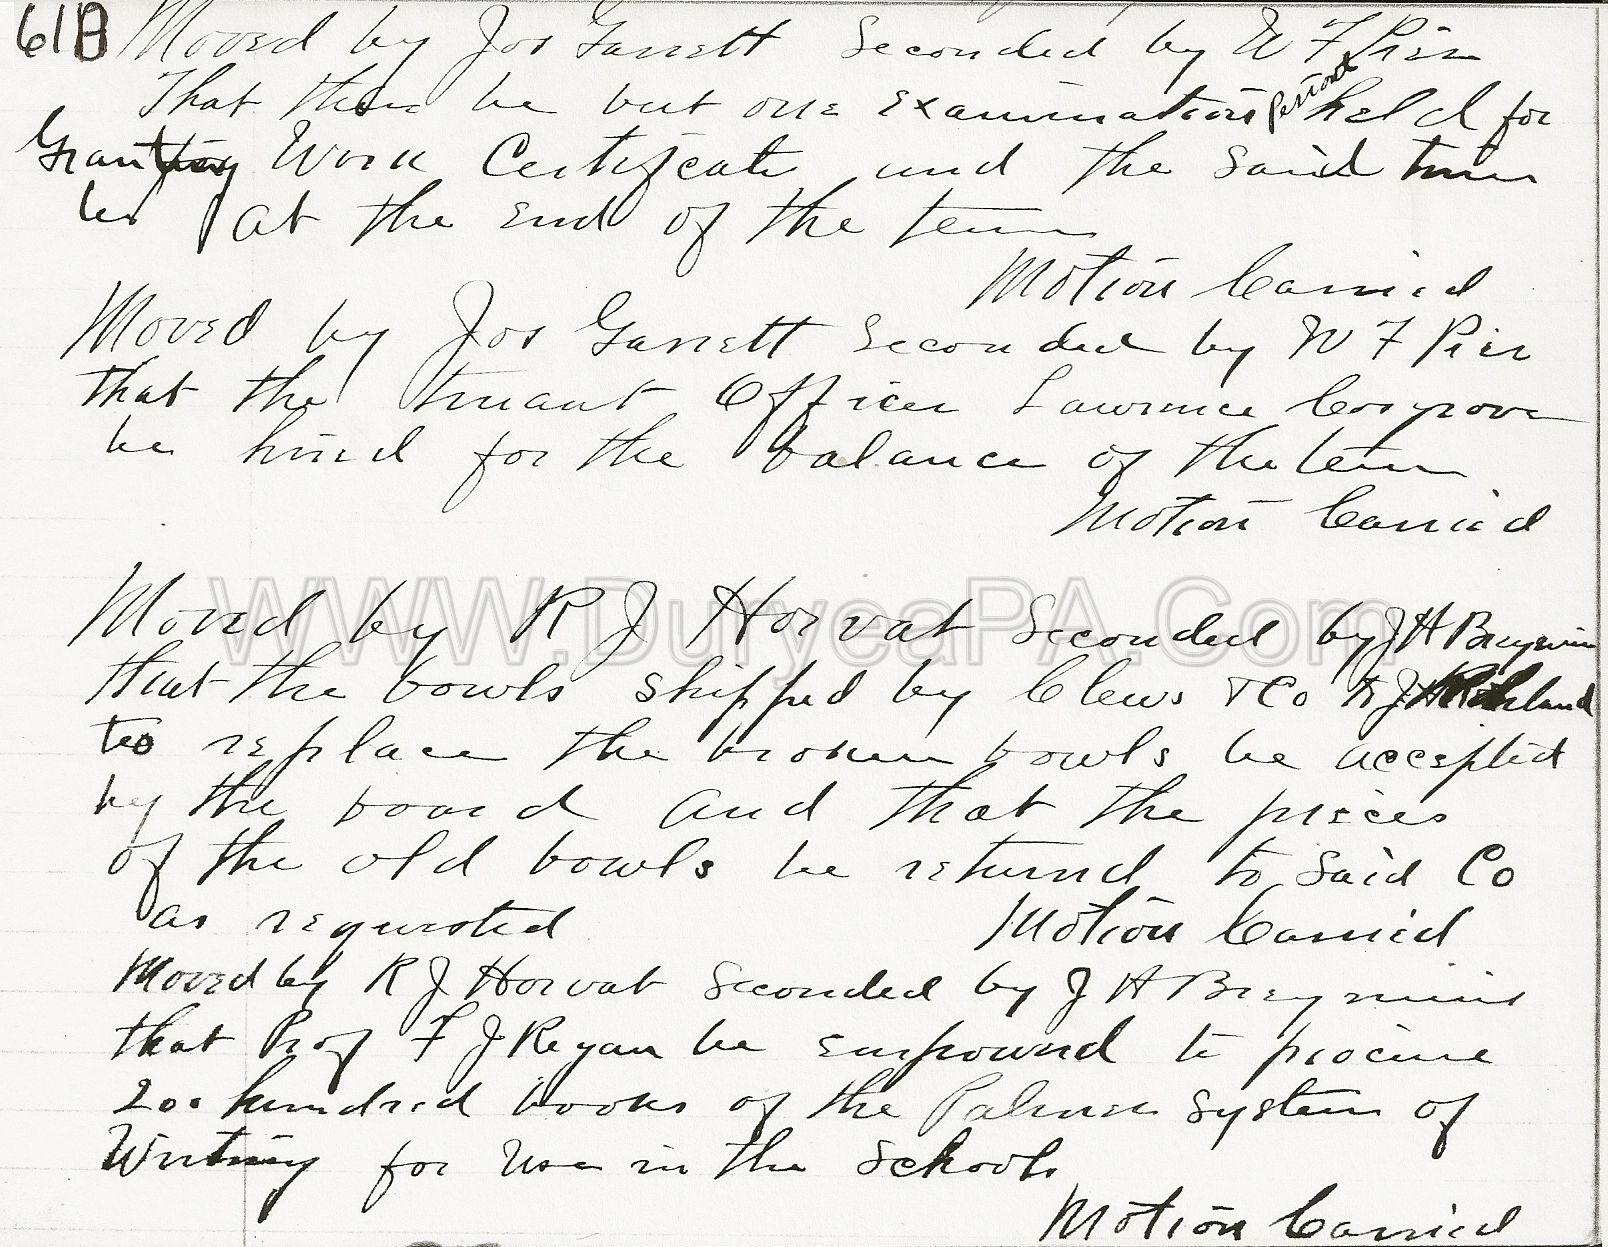 61B Moved by Jos Garrett Seconded by W F Pier
That there be but one examination period held for
Granting Work Certificate and the said time
be at the end of the term
Motion Carried
Moved by Jos Garrett Seconded by W F Pier
that the truant Officer Lawrence Cosgrove
be hired for the balance of the term
Motion Carried
WWW.DuryeaPA.Com
Moved by R J Horvat Seconded by J H
that the bowls shipped by Clews & Co to J H
to replace the broken bowls be accepted
by the board and that the pieces
of the old bowls be returned to said Co
as requested
Motion Carried
Moved by R J Horvat Seconded by J H
that Prof F J Regan be empowered to procure
200 hundred books of the Palmer System of
Writing for use in the Schools
Motion Carried